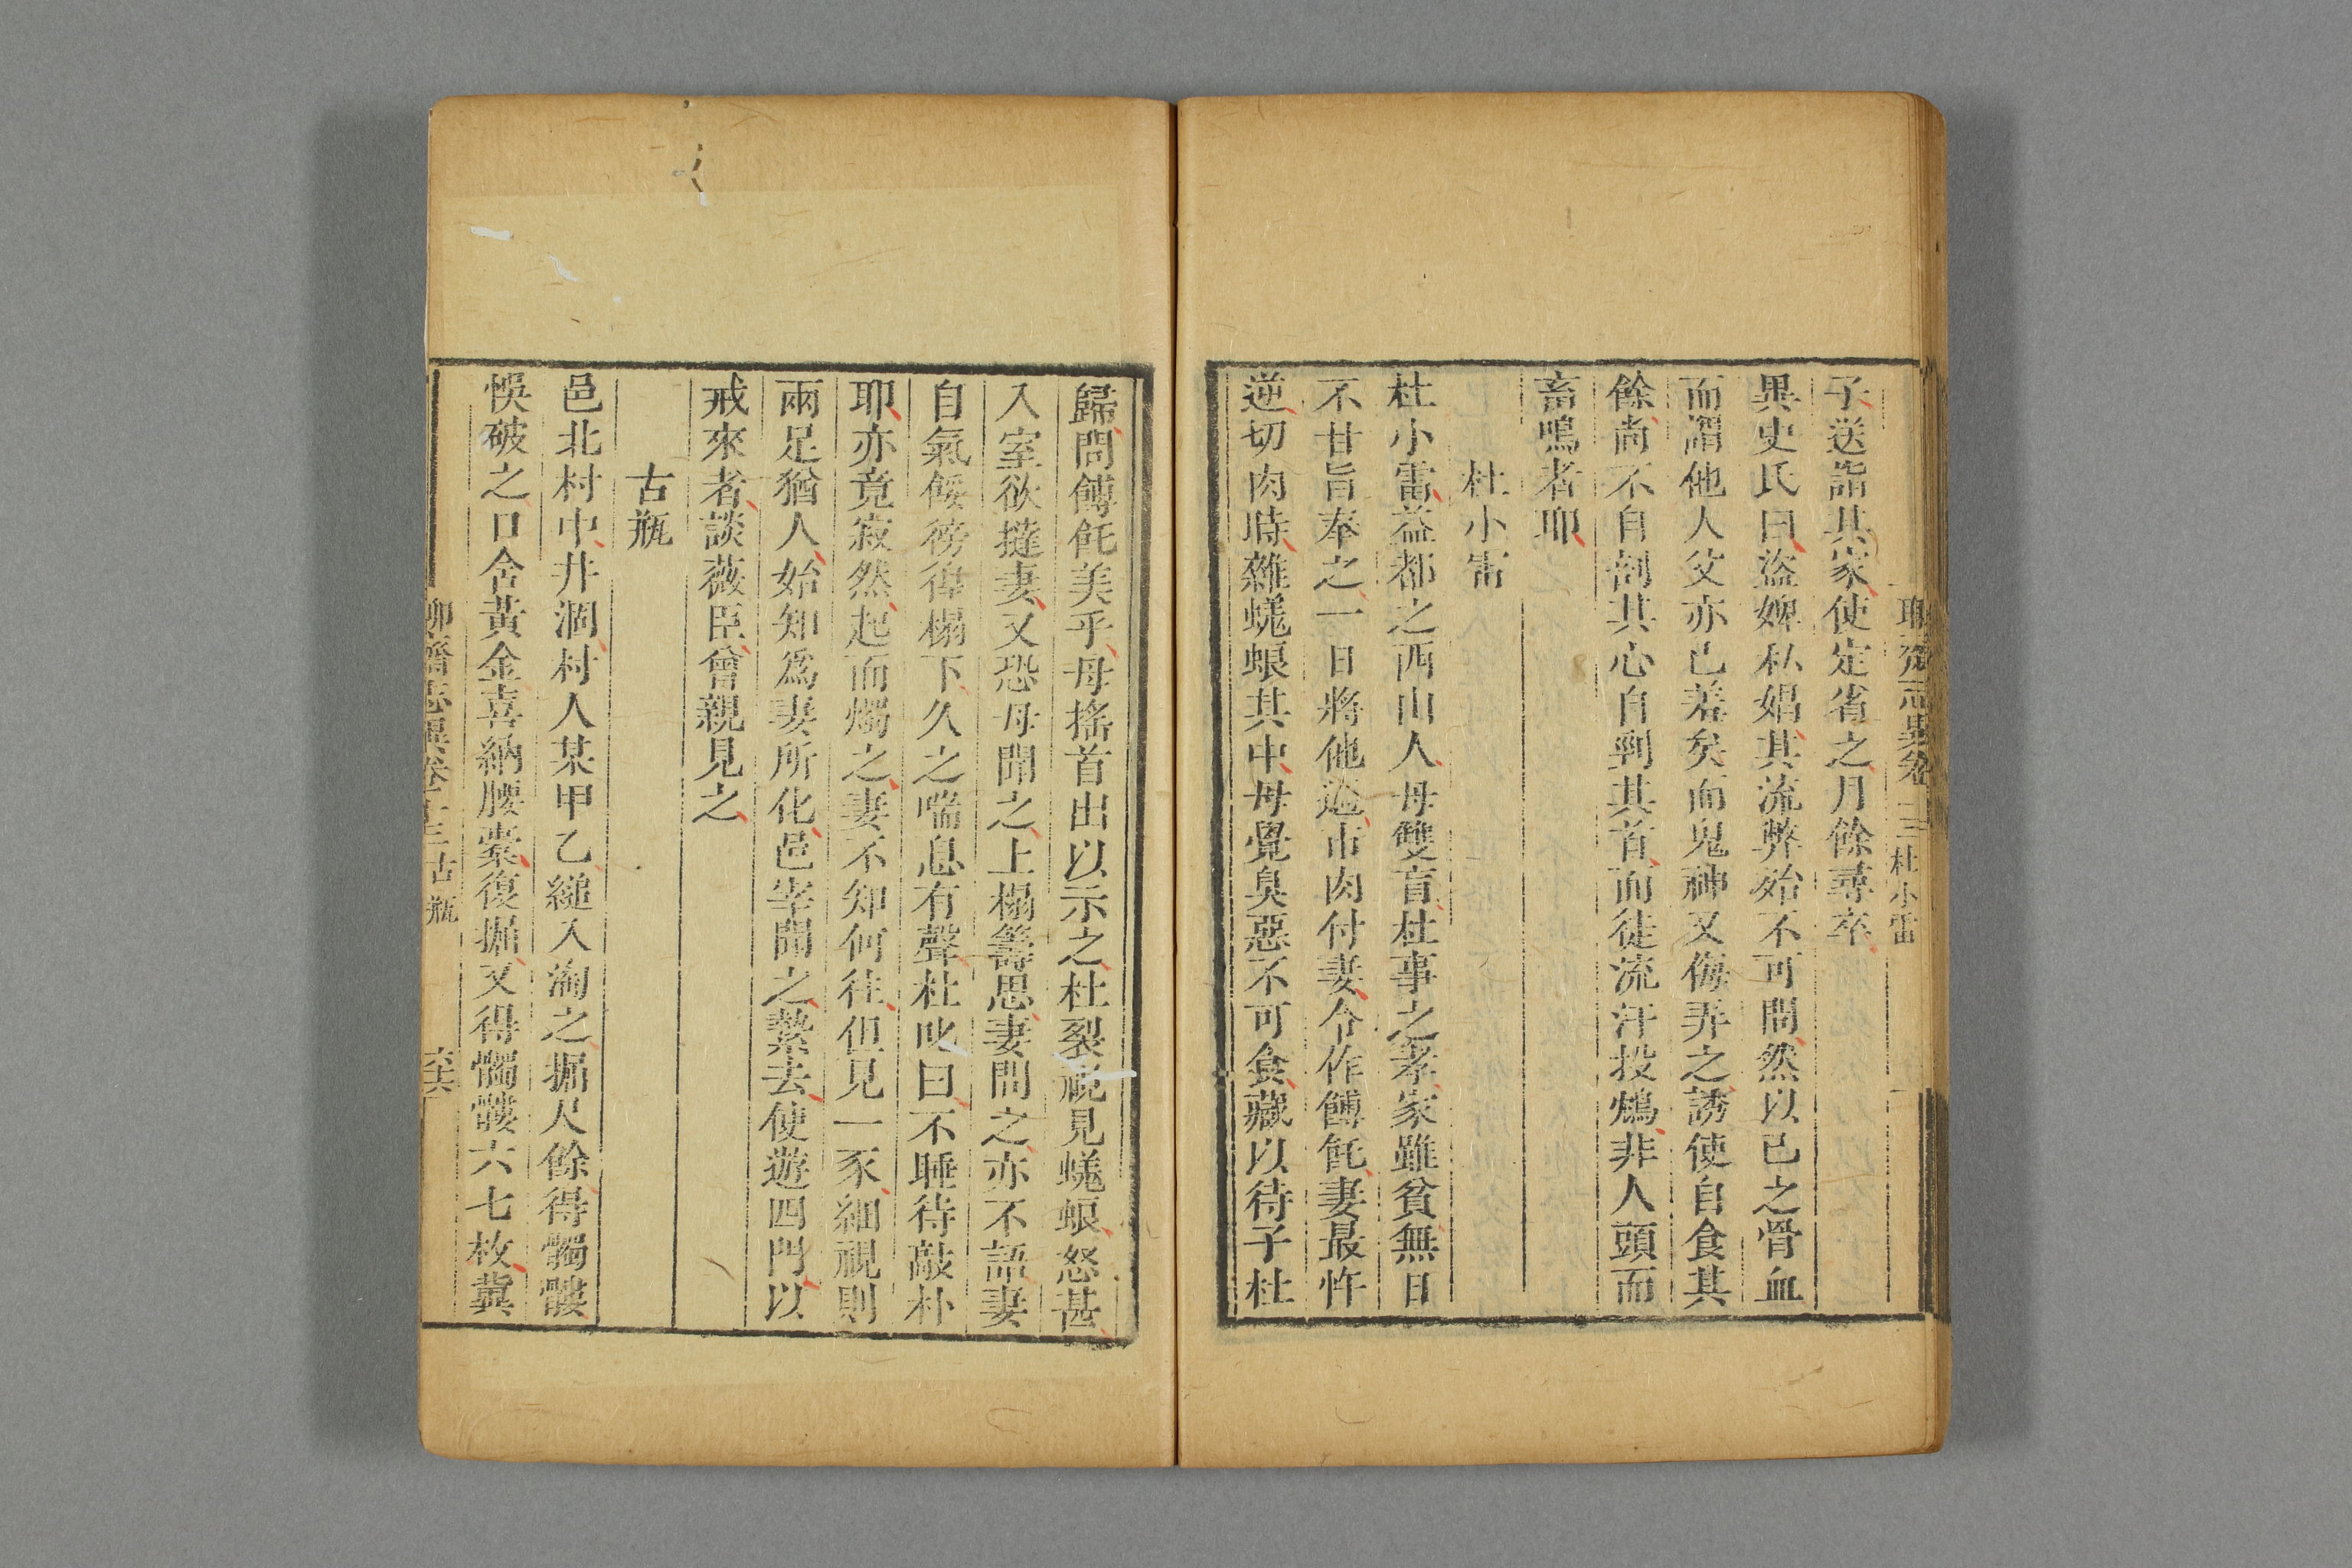 子送詣其家使定省之月餘尋卒
異史氏曰盜婢私娼其流弊殆不可問然以己之骨血
而謂他人父亦已羞矣而鬼神又侮弄之誘使自食其
餘尚不自剖其心自剄其首而徒流汗投鴆非人頭而
畜鳴者耶
杜小雷
杜小雷益都之西山人母雙盲杜事之孝家雖貧無日
不甘旨奉之一日將他適市肉付妻令作餺飥妻最忤
逆切肉時雜蜣蜋其中母覺臭惡不可食藏以待子杜
歸問餺飥美乎母搖首出以示之杜裂視見蜣蜋怒甚
入室欲撻妻又恐母聞之上榻籌思妻問之亦不語妻
自氣餒徬徨榻下久之喘息有聲杜叱曰不睡待敲朴
耶亦竟寂然起而燭之妻不知何往但見一豕細視則
兩足猶人始知為妻所化邑宰聞之縶去使遊四門以
戒來者談薇臣曾親見之
古瓶
邑北村中井涸村人某甲乙縋入淘之掘尺餘得髑髏
悞破之口含黃金喜納腰橐復掘又得髑髏六七枚冀
聊齋志異卷十三 古瓶